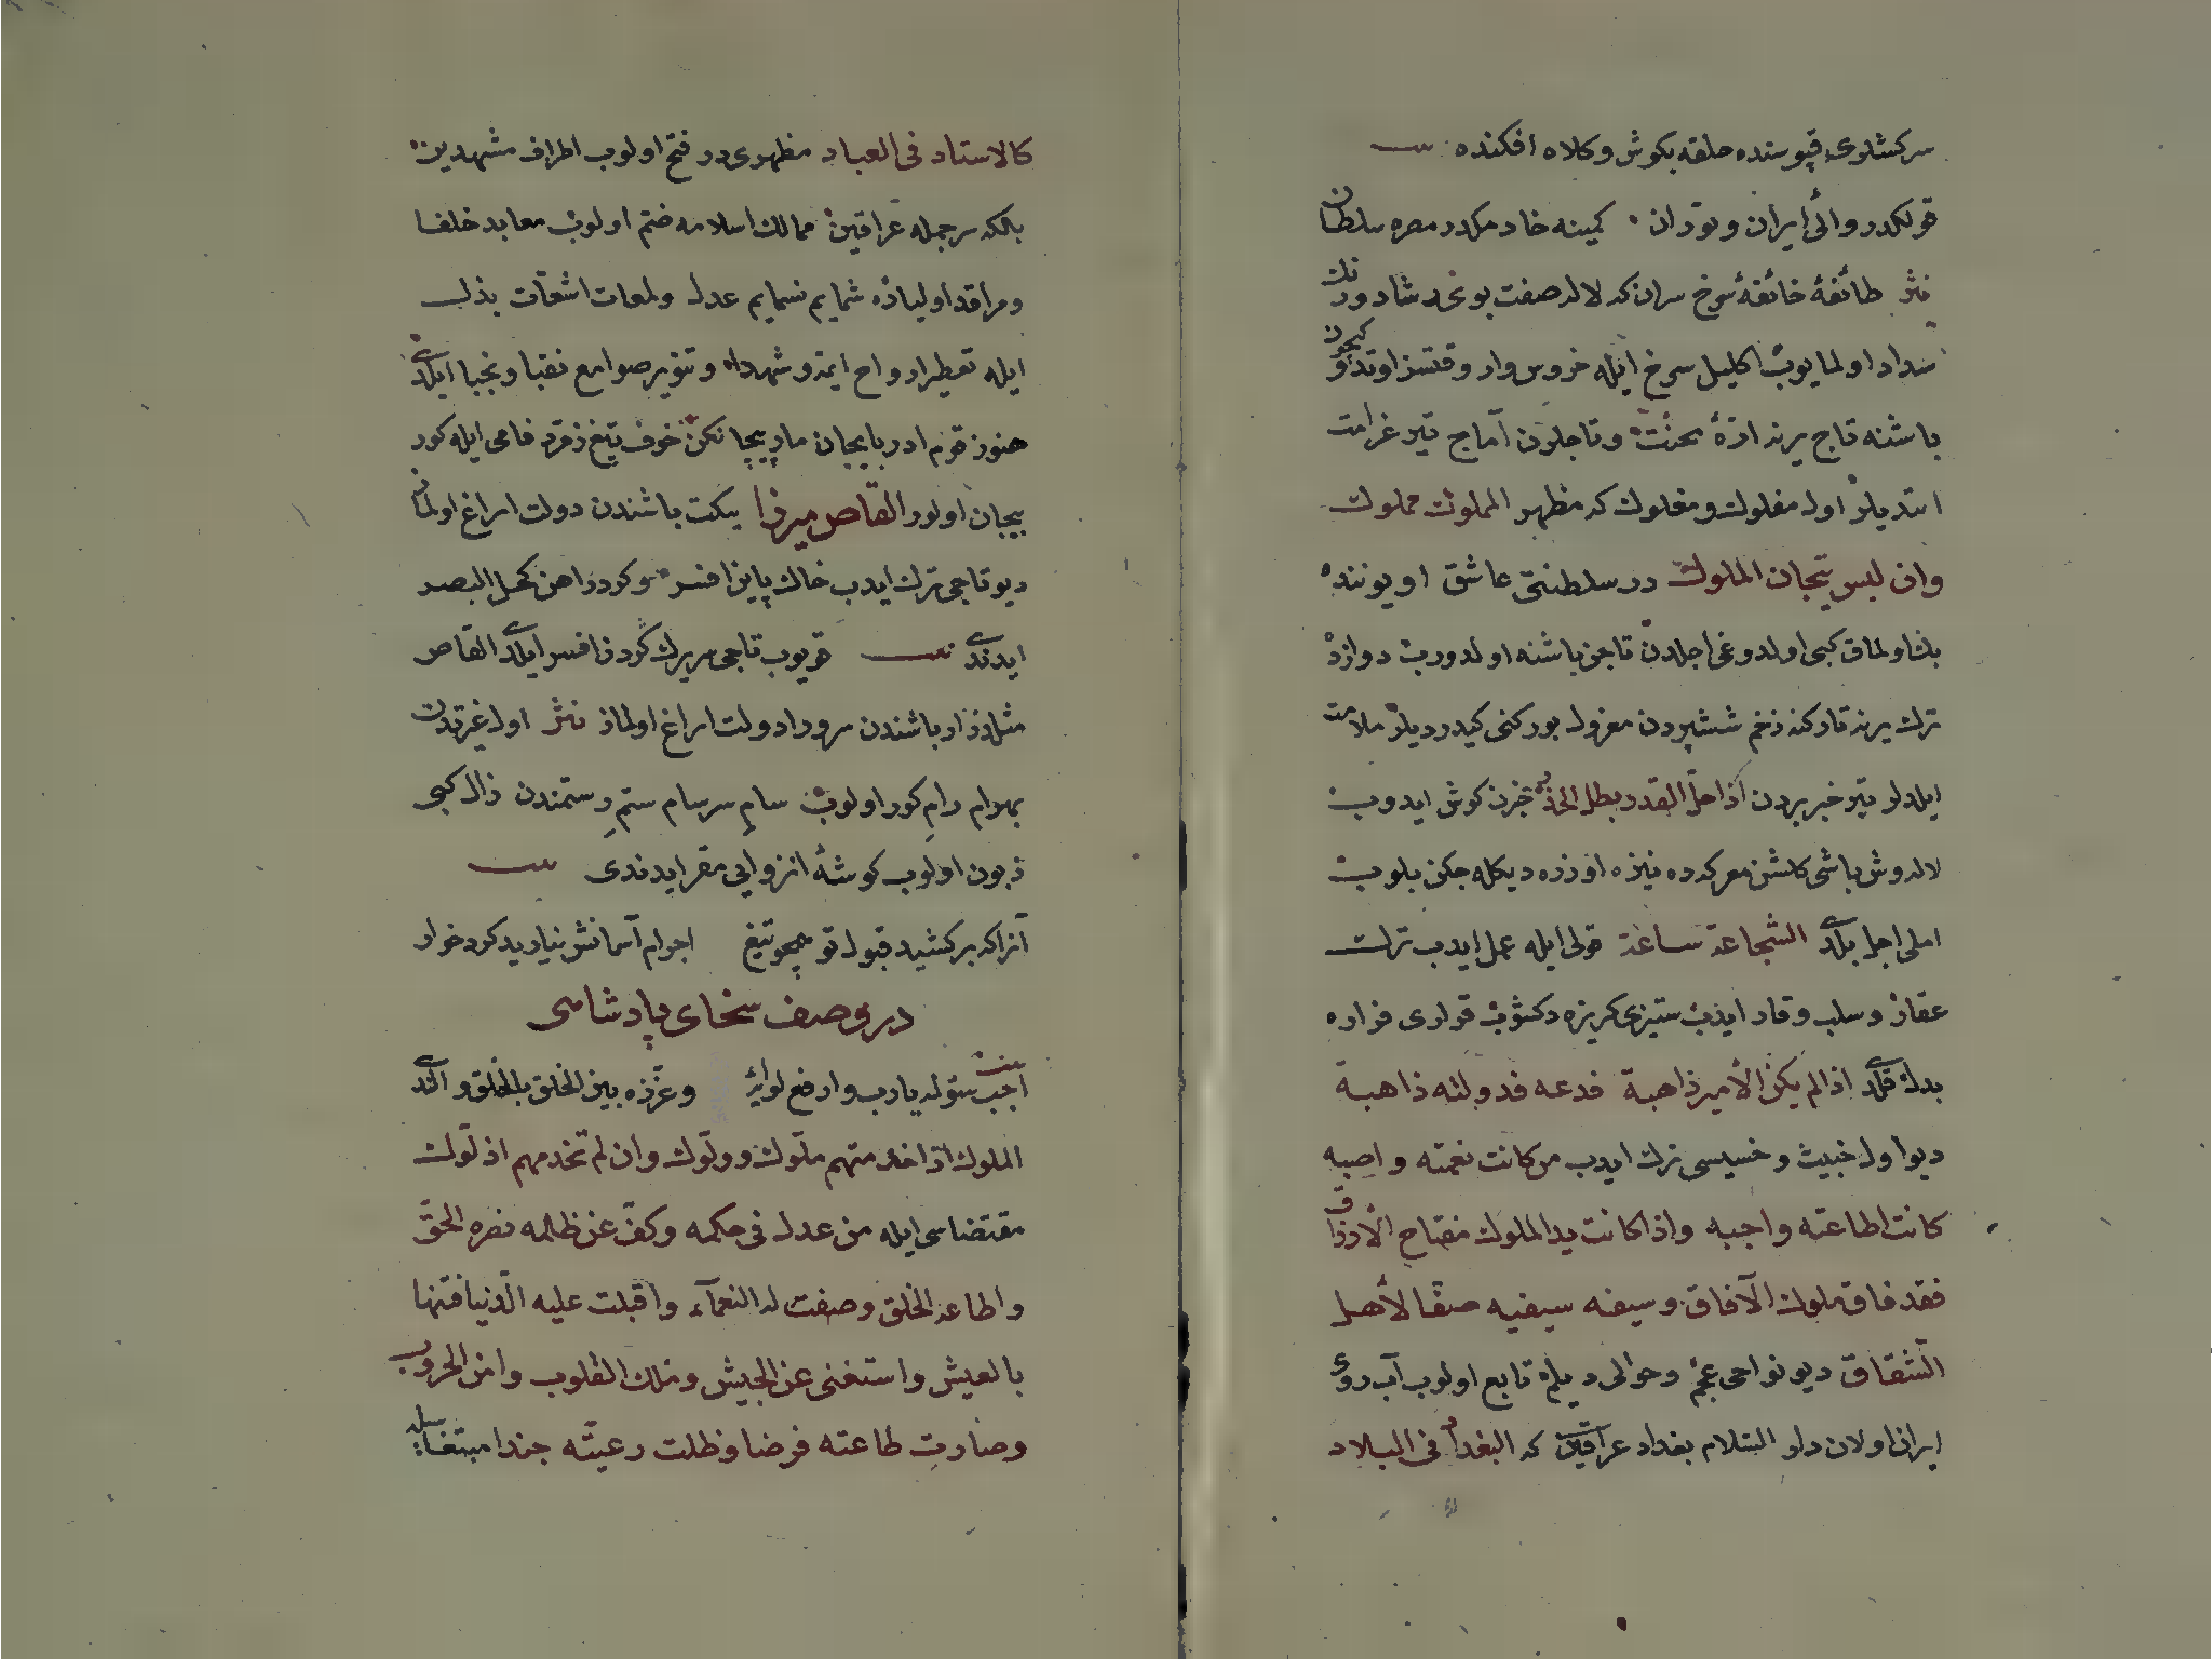 سركشلرى قپوسنده حلقه بكوش وكلاه افكنده بيت
قولكدر والئ ايران وتوران كمينه خادمكدر مصره سلطان
نثر طائفهٔ خائفهٔ سرخ سران كه لاله صفت بو نحه شاد ورنك
اولمايوب اكليل سرخ ايله خروس وار وقتسز اوتدوكيچون
باشنه تاج يرنه ارّهٔ محنت وتاجلرن آماج تير غرامت
ايتديلر اول مفلوك ومغلوك كه مظهر المملوك مملوك
وان لبس تيجان الملوك در سلطنتى عاشق اويوننده
بك اولماق كبى اولدوغى اجلدن تاجن باشنه اولدوروب دوازده
ترك يرنه زخم ششپردن معزول بوركنى كيدرديلر ملامت
ايلدلر تير خبر بردن اذا حلّ القدر بطل الحذر خبرن كوش ايدوب
لاله وش باشى كلشن معركه ده نيزه اوزره ديكله جكن بلوب
املى اجل بلدى الشجاعة ساعة قولى ايله عمل ايدب ترك
عقار وسلب وقار ايدب ستيزى كريزه دكشوب قرارى فراره
بدل قلدى اذا لم يكن الأمير ذا هبة فدعه فدولته ذاهبة
ديو اول خبيث وخسيسى ترك ايدب من كانت نعمته واصبه
كانت اطاعته واجبه واذا كانت يد الملوك مفتاح الأرزاق
فقد فاق ملوك الآفاق وسيفه سيفيه صقا لأهل
الشقاق ديو نواحى عجم وحوالى ديلم تابع اولوب آب روى
ايران اولان دار السلام بغداد عراقين كه البغداد فى البلاد
كالاستاد فى العباد مظهرى در فتح اولوب اطراف مشهدين
بلكه سرجمله عراقين ممالك اسلامه ضم اولوب معابد خلفا
ومراقد اولياده شمايم نسمايم عدل ولمعات اشعّات بذل
ايله تعطير ارواح ايمه وشهدا وتنوير صوامع نقبا ونجبا ايلدى
هنوز قوم ادربايجان خوف تيغ زمرد فامى ايله كور
بيجان اولور القاص ميرزا بيكت باشندن دولت ايراغ اولماز
ديو تاجى ترك ايدب خاك پاين افسر وكرد راهن كحل البصر
ايدندى بيت قويوب تاجى سريرك كردن افسر ايلدى القاص
مثلدر ار باشندن سرورا دولت ايراغ اولماز نثر اول غيرتدن
بهرام رام كور اولوب سام سرسام ستم رستمندن زال كبى
زبون اولوب كوشهٔ انزوايى مقر ايدندى بيت
آنرا كه بركشيد قبول تو همچو تيغ اجرام آسمانش نيارد كرد خوار
در وصف سخاى پادشاهى
اجب سؤله يا رب وارفع لوائه وعززه بين الخلق بالخلق والندى
الملوك اذا خدمتهم ملّوك وولّوك وان لم تخدمهم اذلّوك
مقتضاسى ايله من عدل فى حكمه وكفّ عن ظلمه نصره الحقّ
واطاعه الخلق وصفت له النعمآء واقبلت عليه الدنيا فتهنا
بالعيش واستغنى عن الجيش وملك القلوب وامن الحروب
وصارت طاعته فرضا وظلت رعيته جندا مبتغاسيله